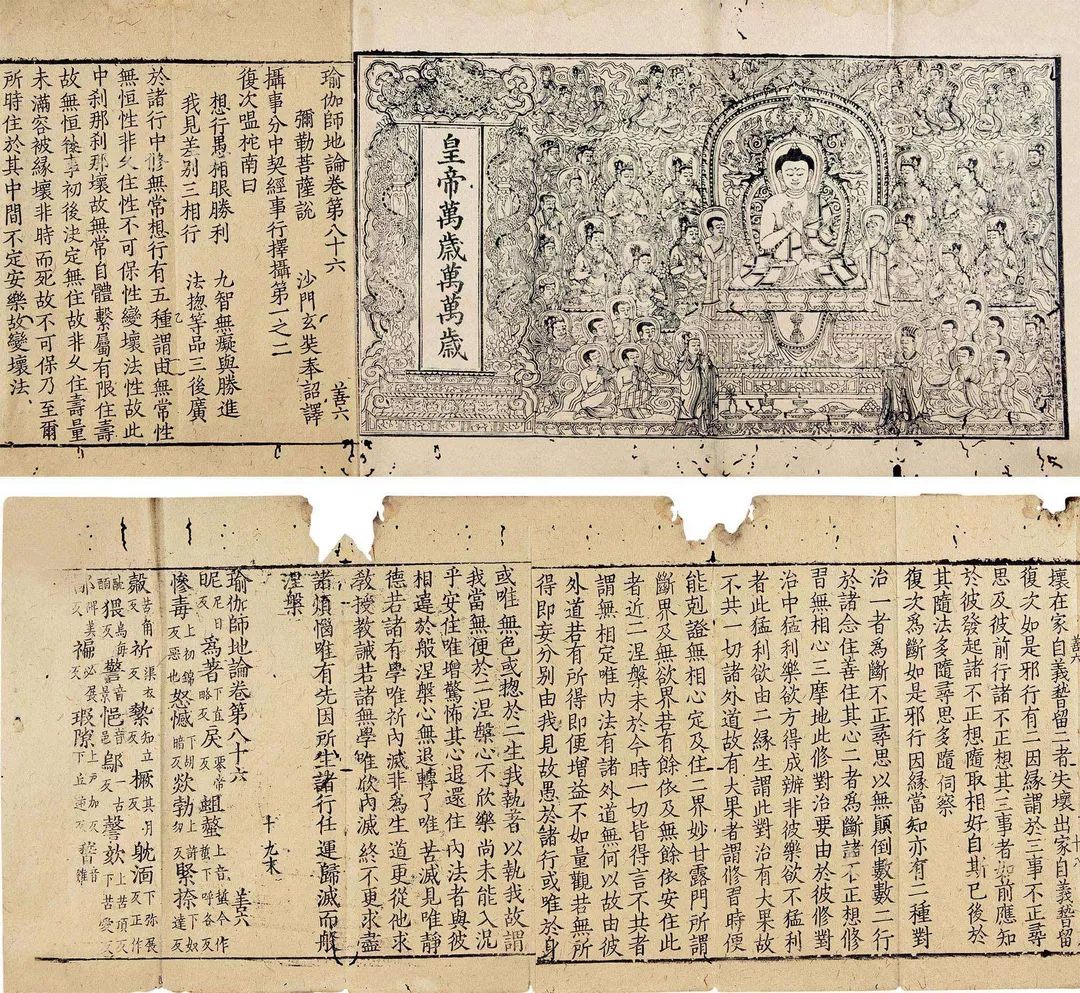 皇帝萬歲萬萬歲
瑜伽師地論卷第八十六 善六
彌勒菩薩說 沙門玄奘奉詔譯
攝事分中契經事行擇攝第一之二
復次嗢柁南曰
想行愚相眼勝利 九智無癡與勝進
我見差別三相行 法揔等品三後廣
於諸行中修無常想行有五種謂由無常性
無恒性非久住性不可保性變壞法性故此
中刹那刹那壞故無常自體繫屬有限住壽
故無恒後事初後決定無住故非久住壽量
未滿容被緣壞非時而死故不可保乃至爾
所時住於其中間不定安樂故變壞法
善六
壞在家自義留二者失壞出家自義留
復次如是邪行有二因緣謂於三事不正尋
思及彼前行諸不正想其三事者如前應知
於彼發起諸不正想隨取相好自斯已後於
其隨法多隨尋思多隨伺察
復次為斷如是邪行因緣當知亦有二種對
治一者為斷不正尋思以無顛倒數數二行
於諸念住善住其心二者為斷諸不正想修
習無相心三摩地此修對治要由於彼修對
治中猛利樂欲方得成辦非彼樂欲不猛利
者此猛利欲由二緣生謂此對治有大果故
不共一切諸外道故有大果者謂修習時便
能剋證無相心定及住二界妙甘露門所謂
斷界及無欲界若有餘依及無餘依安住此
者近二涅槃未於今時一切皆得言不共者
謂無相定唯內法有諸外道無何以故由彼
外道若有所得即便增益不如量觀若無所
得即妄分別由我見故愚於諸行或唯於身
或唯無色或揔於二生我執著以執我故謂
我當無便於二涅槃心不欣樂尚未能入況
乎安住唯增驚怖其心退還住內法者與彼
相違於般涅槃心無退轉了唯苦滅見唯靜
德若諸有學唯祈內滅非為生道更從他求
教授教誡若諸無學唯欣內滅終不更求盡
諸煩惱唯有先因所生諸行任運歸滅而般
涅槃
瑜伽師地論卷第八十六 善六
昵尼日反 為著下直略反 戾 蛆螫
慘毒 怒憾 欻勃 緊捺
轂苦角反 祈渠衣反 縶知立反 橛其月反 躭湎
猥烏每反 警音景 悒音邑 鄔
褊 瑕隙